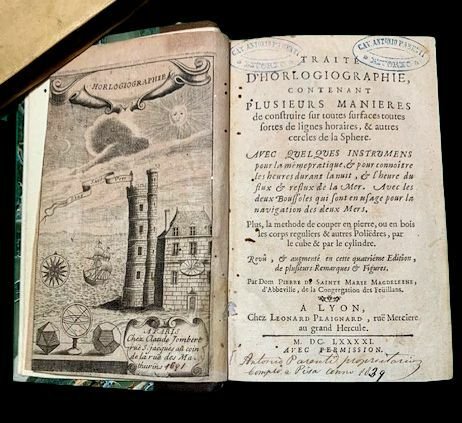 HORLOGIOGRAPHIE
A PARIS
Chez Claude Jombert
rue S. Jacques au coin
de la rüe des Ma-
thurins 1691
CAV. ANTONIO PARENTI
CAV. ANTONIO PARENTI
TRAITÉ
D'HORLOGIOGRAPHIE,
CONTENANT
PLUSIEURS MANIERES
de construire sur toutes surfaces toutes
sortes de lignes horaires, & autres
cercles de la Sphere.
AVEC QUELQUES INSTRUMENS
pour la même pratique, & pour connoître
les heures durant la nuit, & l'heure du
flux & reflux de la Mer. Avec les
deux Boussoles qui sont en usage pour la
navigation des deux Mers.
Plus, la methode de couper en pierre, ou en bois
les corps reguliers & autres Polièdres, par
le cube & par le cylindre.
Revû, & augmenté en cette quatriéme Edition,
de plusieurs Remarques & Figures.
Par Dom PIERRE DE SAINTE MARIE MAGDELEINE,
d'Abbeville, de la Congregation des Feüillans.
A LYON,
Chez LEONARD PLAIGNARD, ruë Merciere
au grand Hercule.
M. DC. LXXXXI.
AVEC PERMISSION.
Antonio Parenti proprietario
comprò a Pisa anno 1839